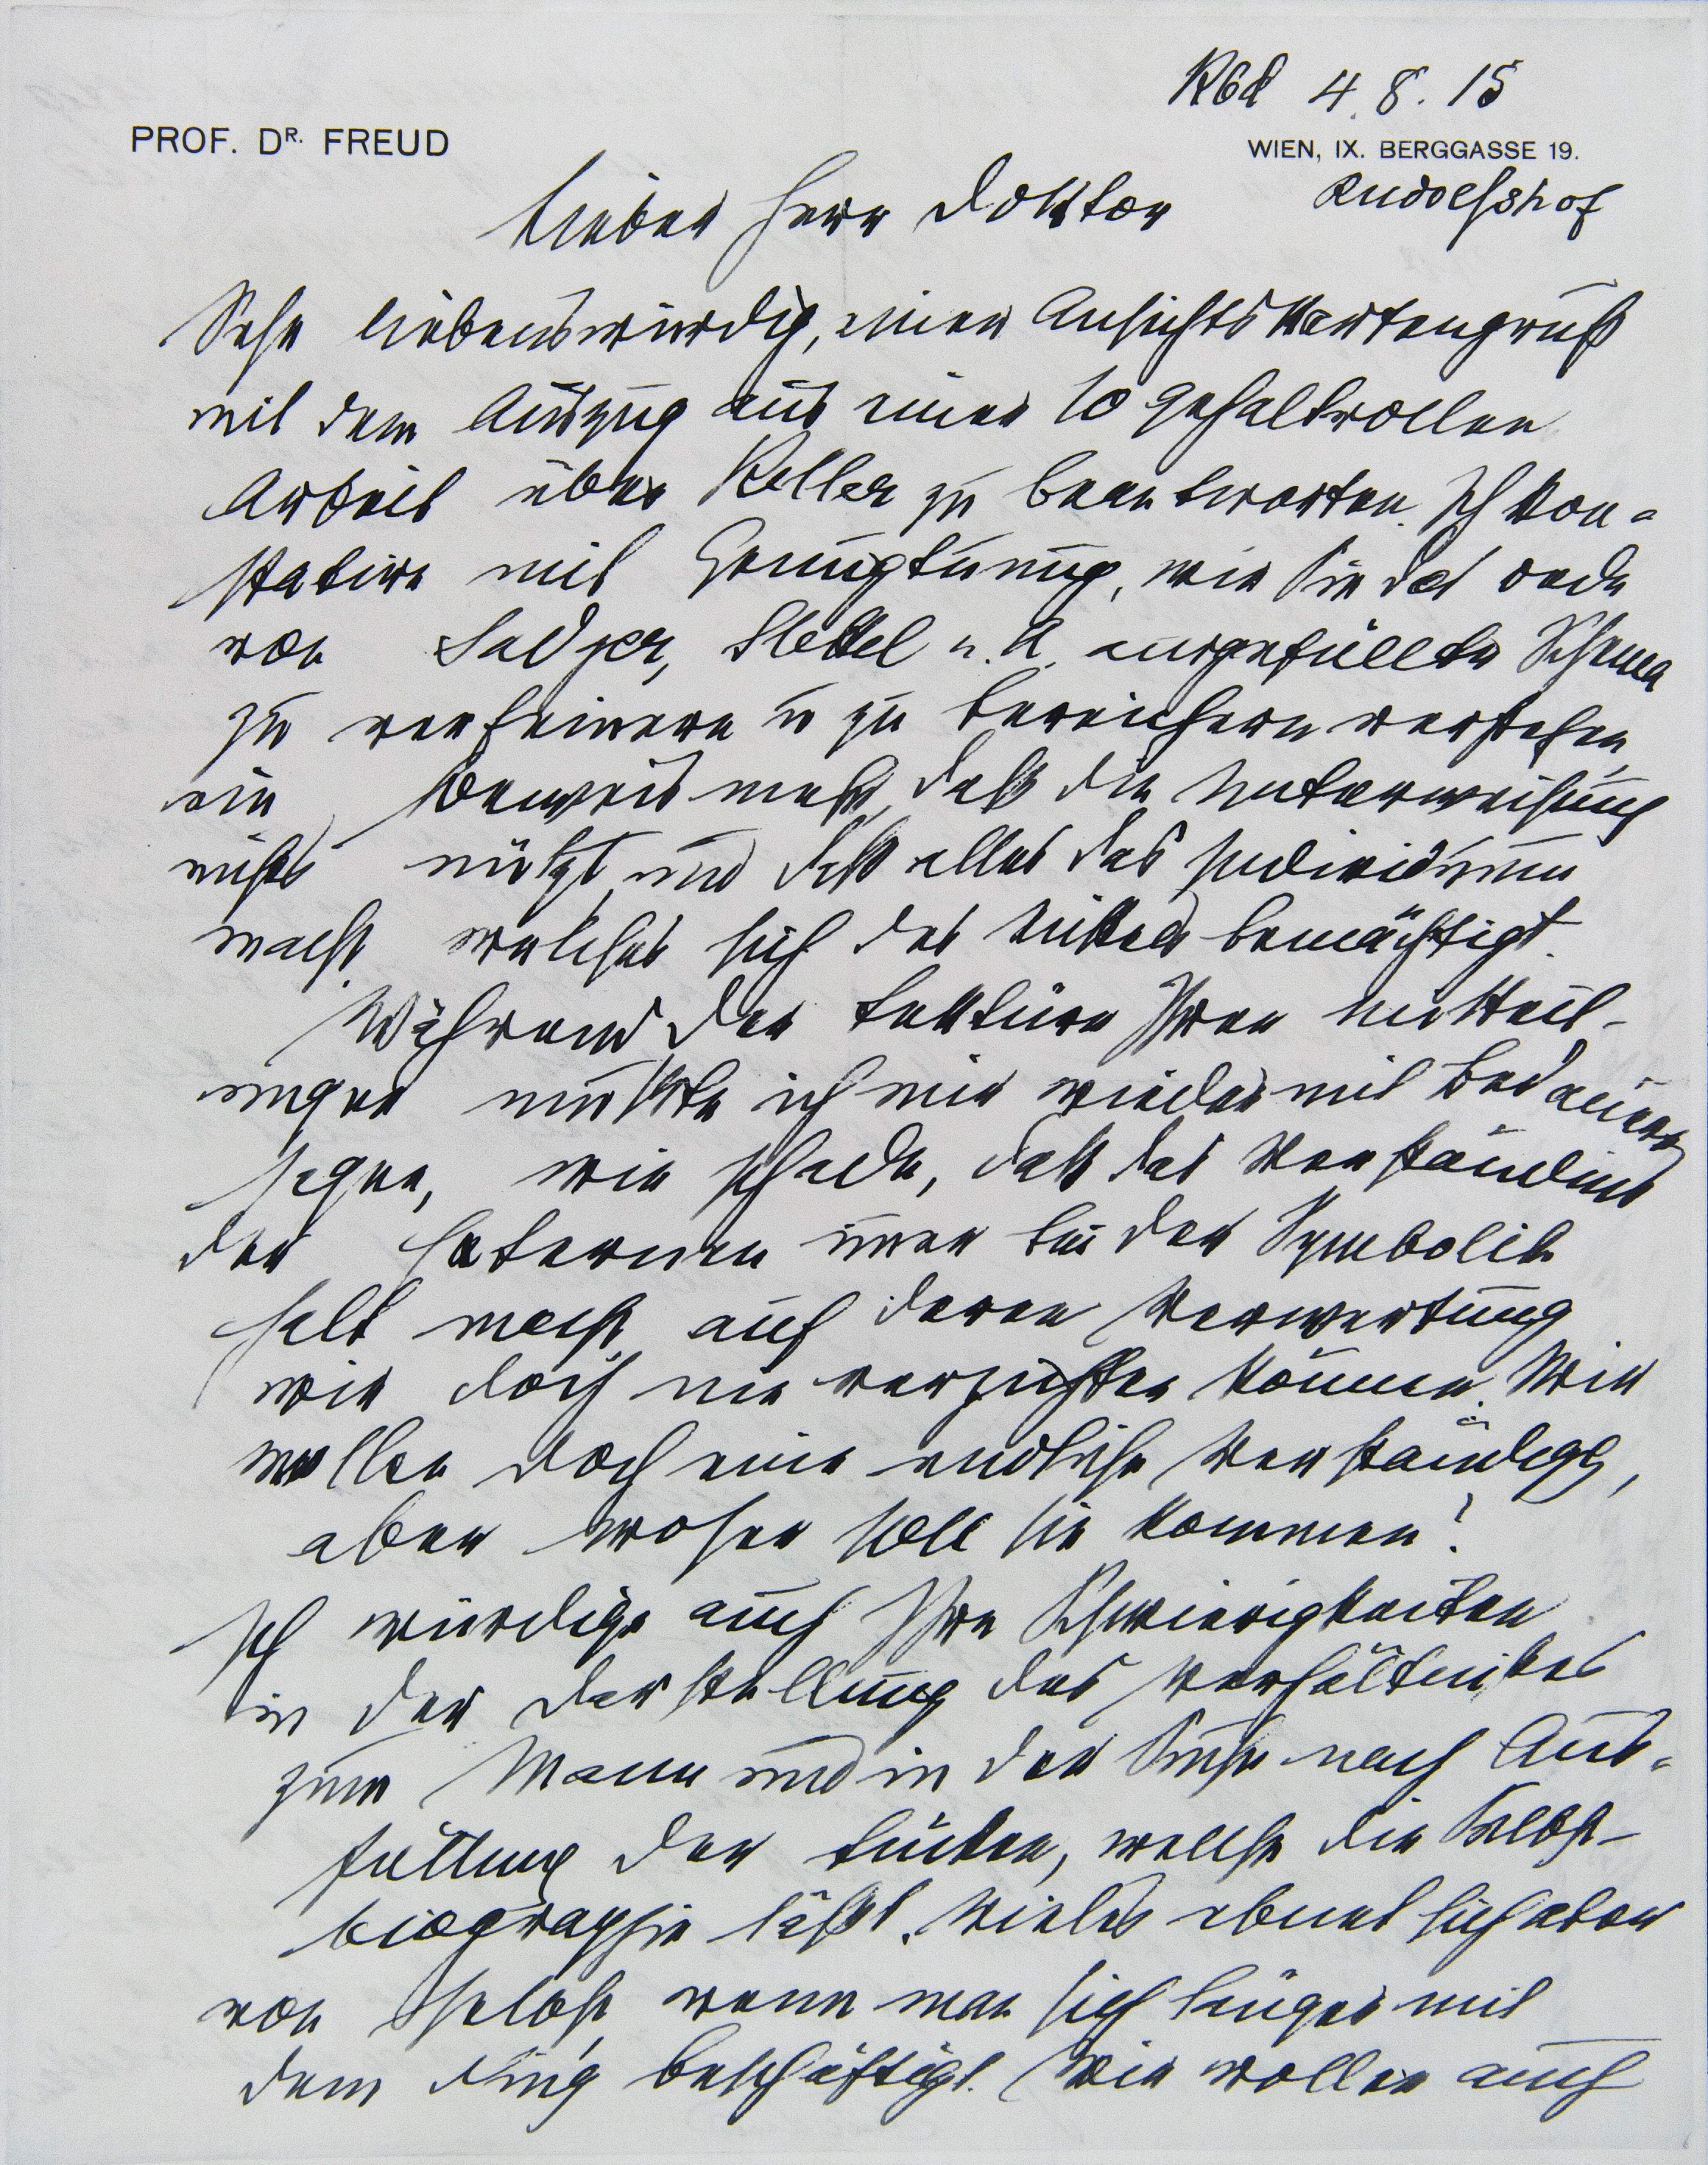 Kbd 4. 8. 15
PROF. DR. FREUD
WIEN, IX. BERGGASSE 19.
Rudolfshof
Lieber Herr Doktor
Sehr liebenswürdig, einen Ansichtskartengruß
mit dem Auszug aus einer so gehaltvollen
Arbeit über Keller zu beantworten. Ich kon-
statire mit Genugtuung, wie Sie das öde
von Sadger, Stekel u. A. ausgefüllte Schema
zu verfeinern u zu bereichern verstehen,
ein Beweis mehr, daß die Unterweisung
nichts nützt und daß alles das Individuum
macht welches sich der bemächtigt.
Während der Lektüre Ihrer Mitteil-
ungen mußte ich mir wieder mit Bedauern
sagen, wie schade, daß das Verständnis
der immer bei der Symbolik
halt macht auf deren Verwertung
wir doch nie verzichten können. Wir
wollen doch eine endliche Verständigg,
aber woher soll sie kommen?
Ich würdige auch Ihre Schwierigkeiten
in der Darstellung des Verhältnisses
zum Mann und in der Suche nach Aus-
füllung der Lücken, welche die Selbst-
biographie läßt. Vieles ebnet sich aber
von selbst wenn man sich länger mit
dem Ding beschäftigt. Wir wollen auch